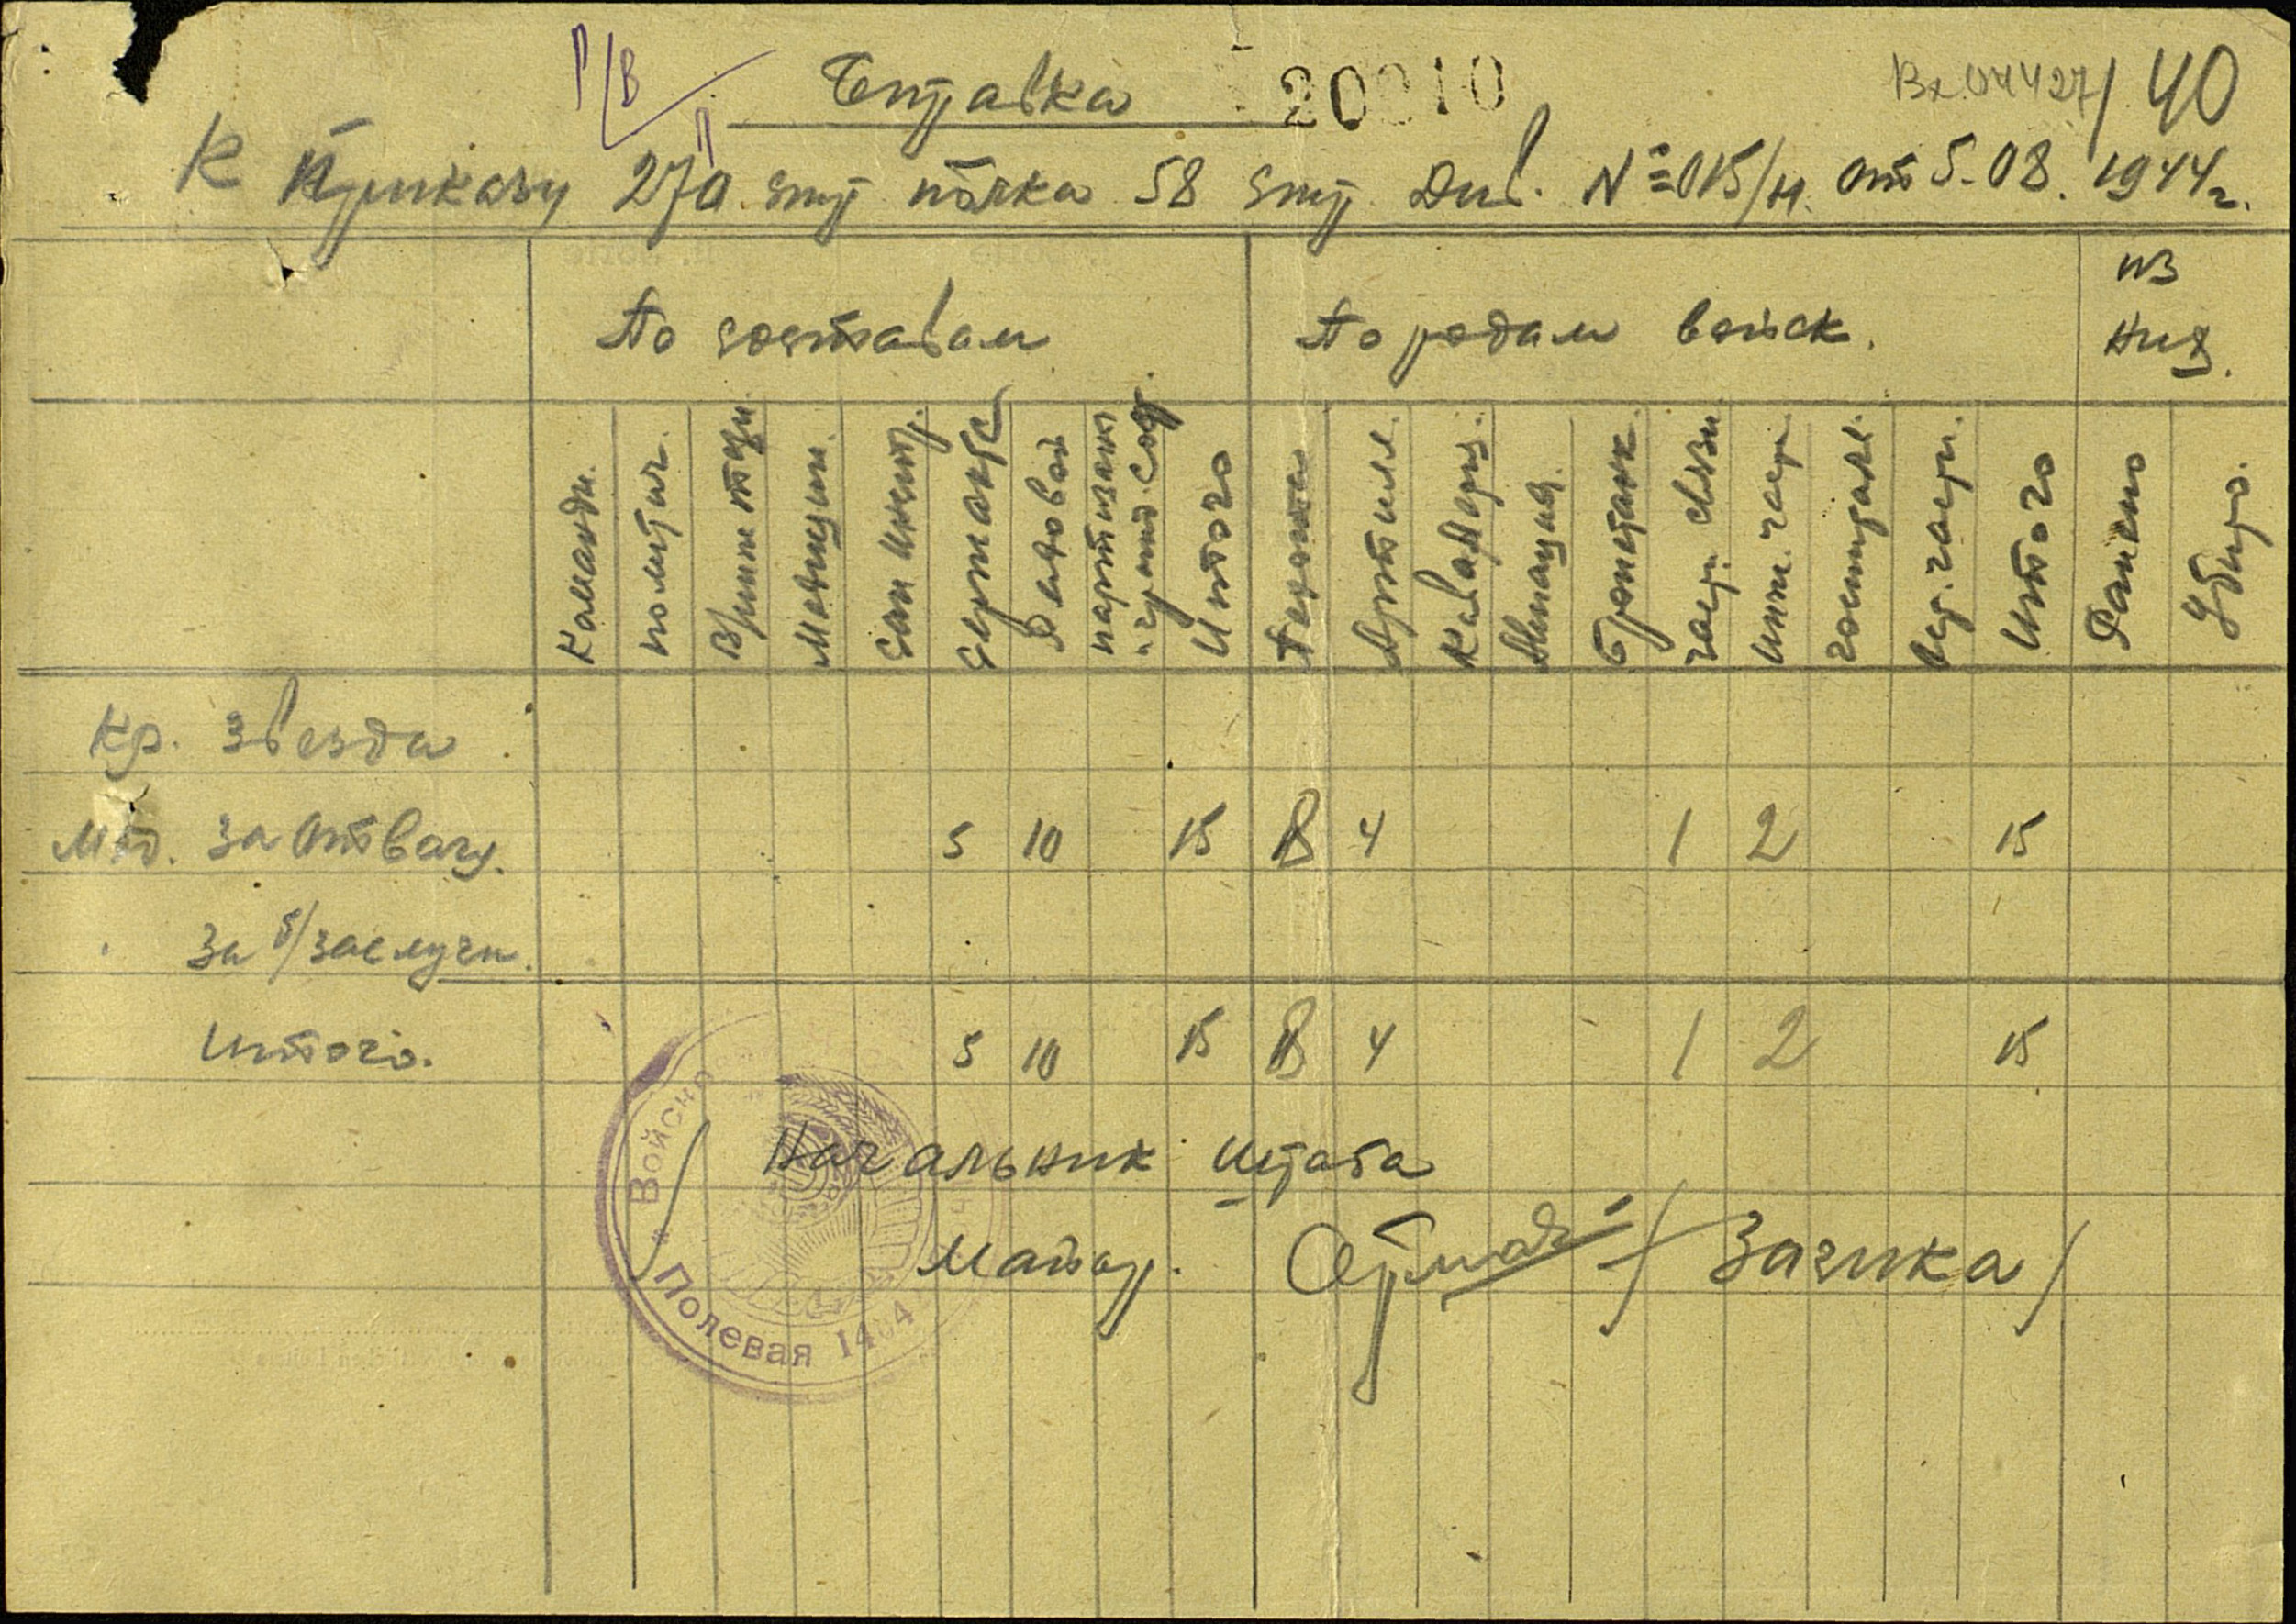 Справка
20910
Вх 04427/40
К Приказу 270 стр полка 58 стр Див. №015/н от 5.08.1944г.
По составам
По родам войск.
из них
Команди.
политич.
Медицин.
сержанс
Рядовой
партизаны
Итого
Пехота
Артилл.
Кавалерия
Авиация
Бронетанк.
част. связи
инж. част.
госпиталя.
Итого
Ранено
Убито.
Кр. Звезда
Мед. За Отвагу. 5 10 15 8 4 1 2 15
За б/заслуги.
Итого. 5 10 15 8 4 1 2 15
Начальник Штаба
Майор. /Загика/
Войско
Полевая